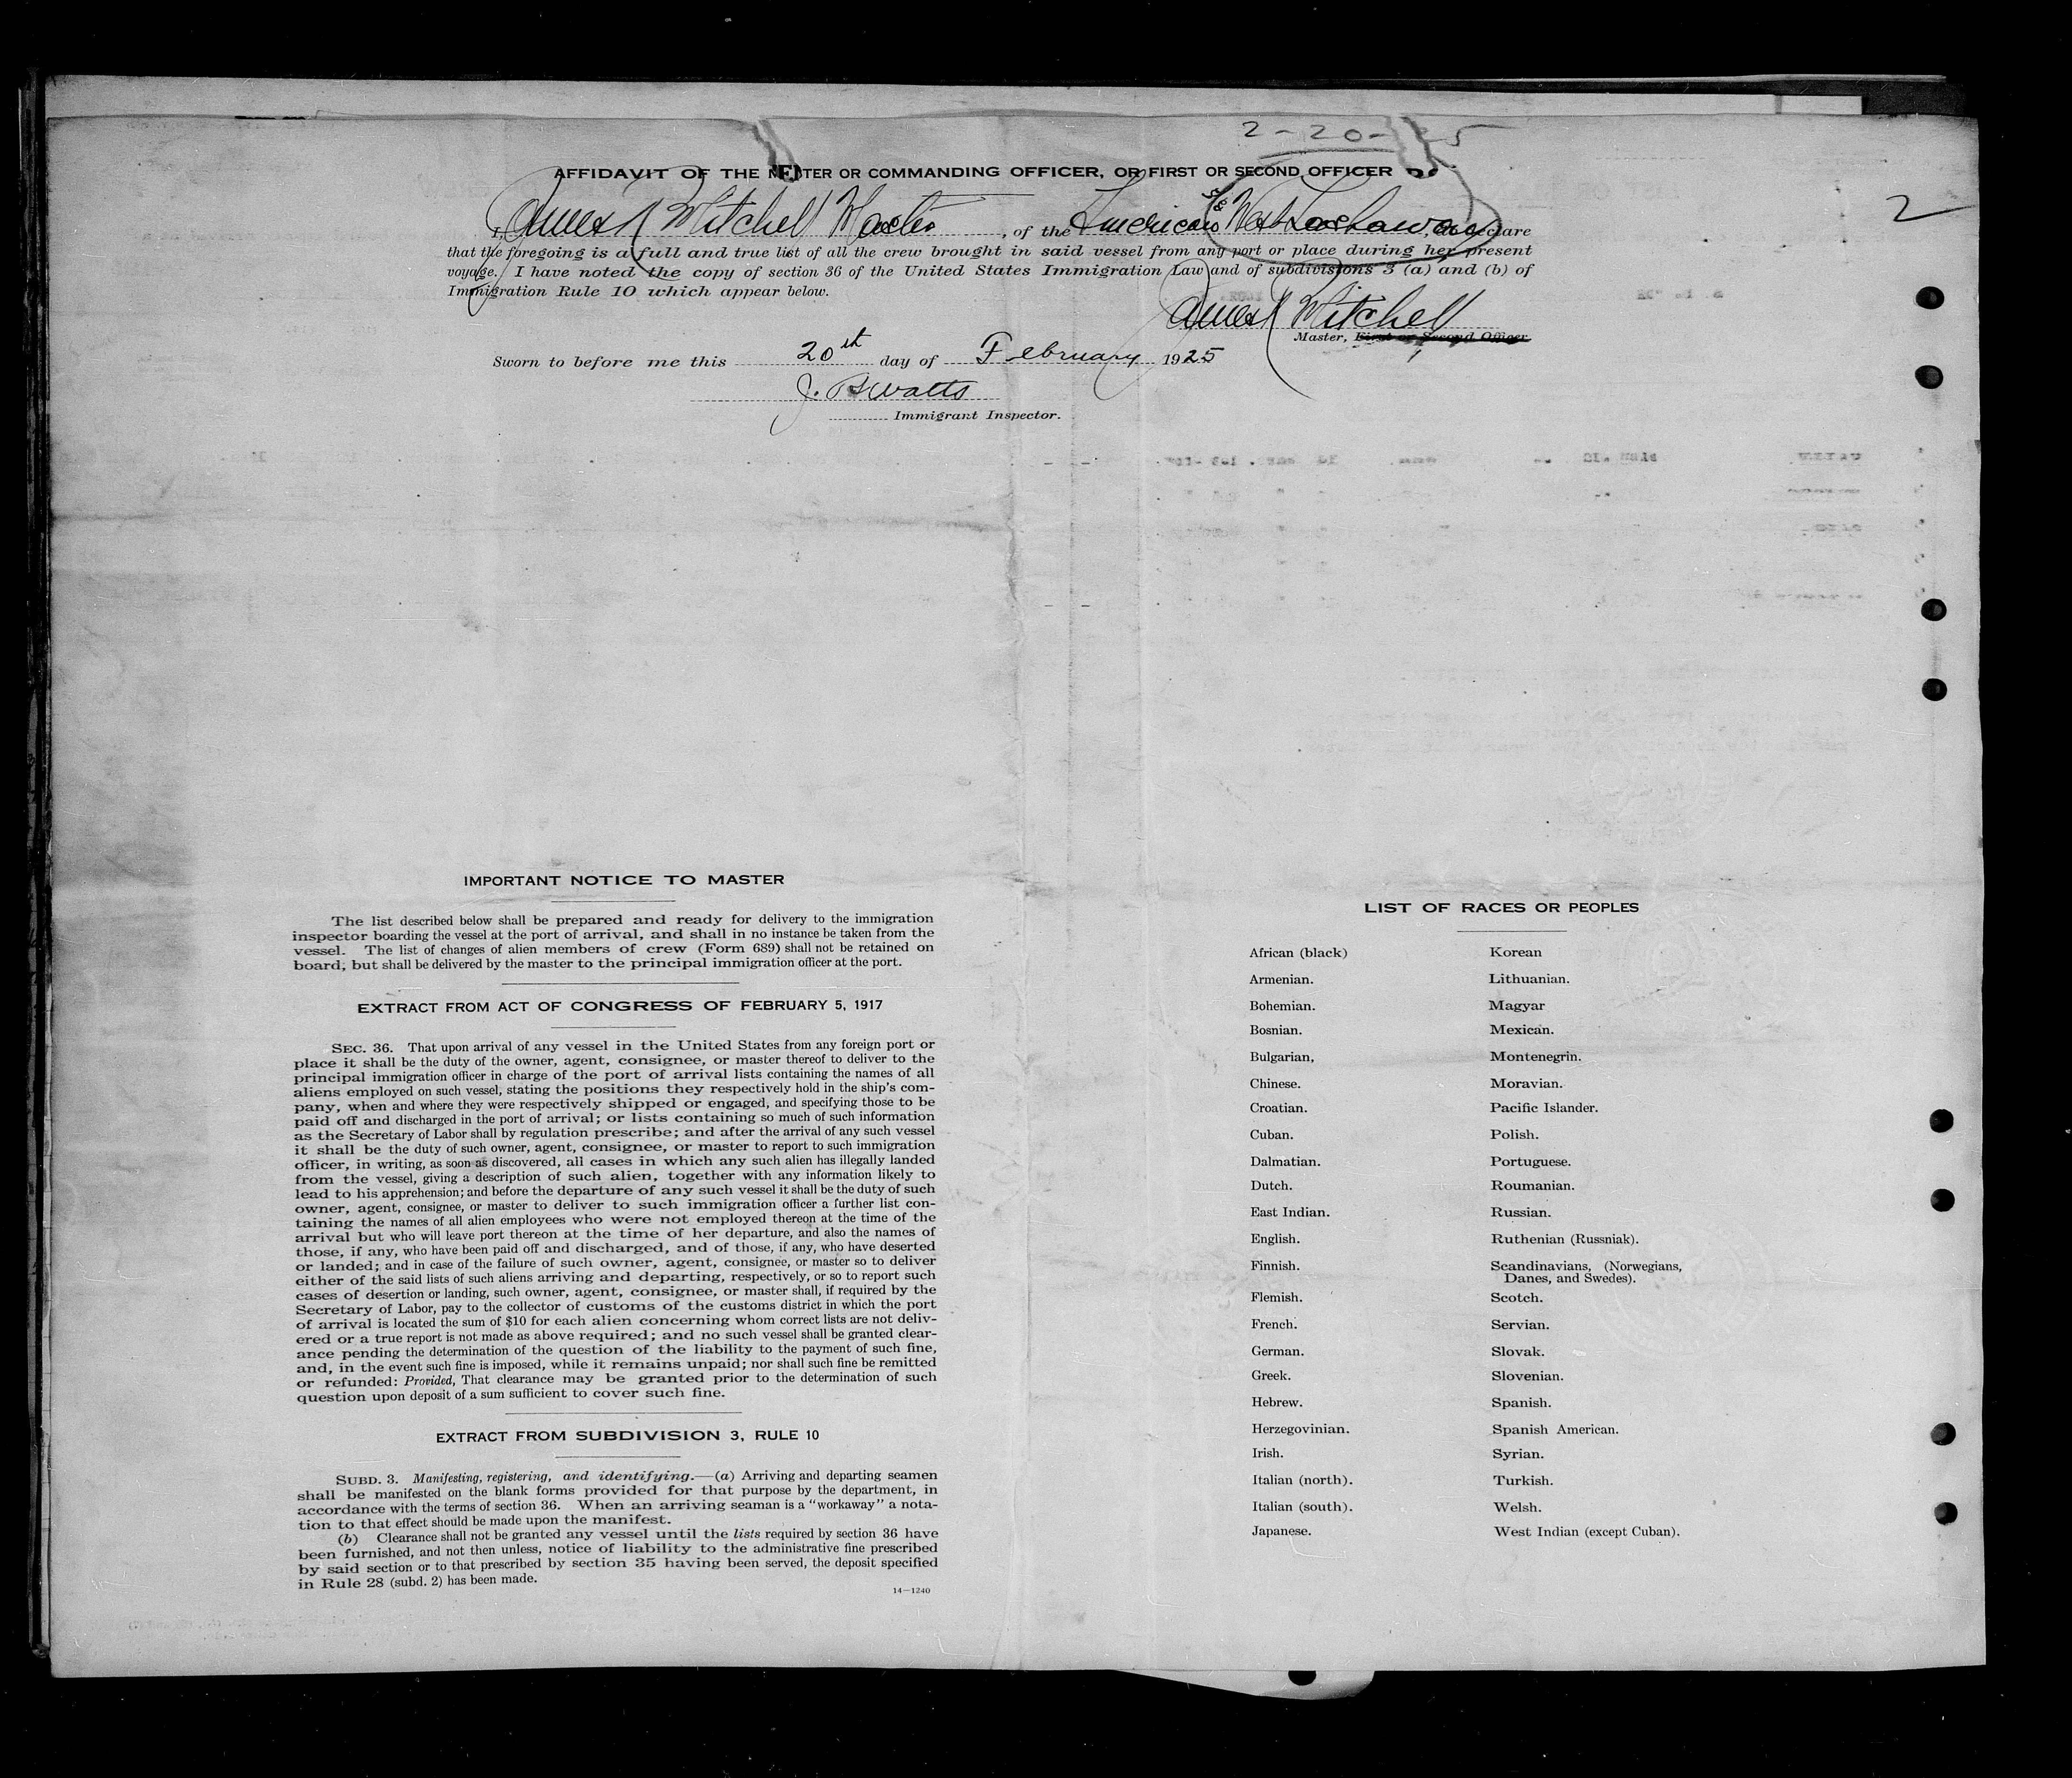 2-20-25
2
AFFIDAVIT OF THE MASTER OR COMMANDING OFFICER, OR FIRST OR SECOND OFFICER
I, James R Mitchell Master, of the American S/S West Lashaway, do declare
that the foregoing is a full and true list of all the crew brought in said vessel from any port or place during her present
voyage. I have noted the copy of section 36 of the United States Immigration Law and of subdivisions 3 (a) and (b) of
Immigration Rule 10 which appear below.
James R Mitchell
Master, First or Second Officer.
Sworn to before me this 20th day of February 1925
J. B Watts
Immigrant Inspector.
IMPORTANT NOTICE TO MASTER
The list described below shall be prepared and ready for delivery to the immigration
inspector boarding the vessel at the port of arrival, and shall in no instance be taken from the
vessel. The list of changes of alien members of crew (Form 689) shall not be retained on
board; but shall be delivered by the master to the principal immigration officer at the port.
EXTRACT FROM ACT OF CONGRESS OF FEBRUARY 5, 1917
SEC. 36. That upon arrival of any vessel in the United States from any foreign port or
place it shall be the duty of the owner, agent, consignee, or master thereof to deliver to the
principal immigration officer in charge of the port of arrival lists containing the names of all
aliens employed on such vessel, stating the positions they respectively hold in the ship's com-
pany, when and where they were respectively shipped or engaged, and specifying those to be
paid off and discharged in the port of arrival; or lists containing so much of such information
as the Secretary of Labor shall by regulation prescribe; and after the arrival of any such vessel
it shall be the duty of such owner, agent, consignee, or master to report to such immigration
officer, in writing, as soon as discovered, all cases in which any such alien has illegally landed
from the vessel, giving a description of such alien, together with any information likely to
lead to his apprehension; and before the departure of any such vessel it shall be the duty of such
owner, agent, consignee, or master to deliver to such immigration officer a further list con-
taining the names of all alien employees who were not employed thereon at the time of the
arrival but who will leave port thereon at the time of her departure, and also the names of
those, if any, who have been paid off and discharged, and of those, if any, who have deserted
or landed; and in case of the failure of such owner, agent, consignee, or master so to deliver
either of the said lists of such aliens arriving and departing, respectively, or so to report such
cases of desertion or landing, such owner, agent, consignee, or master shall, if required by the
Secretary of Labor, pay to the collector of customs of the customs district in which the port
of arrival is located the sum of $10 for each alien concerning whom correct lists are not deliv-
ered or a true report is not made as above required; and no such vessel shall be granted clear-
ance pending the determination of the question of the liability to the payment of such fine,
and, in the event such fine is imposed, while it remains unpaid; nor shall such fine be remitted
or refunded: Provided, That clearance may be granted prior to the determination of such
question upon deposit of a sum sufficient to cover such fine.
EXTRACT FROM SUBDIVISION 3, RULE 10
SUBD. 3. Manifesting, registering, and identifying.—(a) Arriving and departing seamen
shall be manifested on the blank forms provided for that purpose by the department, in
accordance with the terms of section 36. When an arriving seaman is a "workaway" a nota-
tion to that effect should be made upon the manifest.
(b) Clearance shall not be granted any vessel until the lists required by section 36 have
been furnished, and not then unless, notice of liability to the administrative fine prescribed
by said section or to that prescribed by section 35 having been served, the deposit specified
in Rule 28 (subd. 2) has been made.
14—1240
LIST OF RACES OR PEOPLES
African (black)
Armenian.
Bohemian.
Bosnian.
Bulgarian,
Chinese.
Croatian.
Cuban.
Dalmatian.
Dutch.
East Indian.
English.
Finnish.
Flemish.
French.
German.
Greek.
Hebrew.
Herzegovinian.
Irish.
Italian (north).
Italian (south).
Japanese.
Korean
Lithuanian.
Magyar
Mexican.
Montenegrin.
Moravian.
Pacific Islander.
Polish.
Portuguese.
Roumanian.
Russian.
Ruthenian (Russniak).
Scandinavians, (Norwegians,
Danes, and Swedes).
Scotch.
Servian.
Slovak.
Slovenian.
Spanish.
Spanish American.
Syrian.
Turkish.
Welsh.
West Indian (except Cuban).